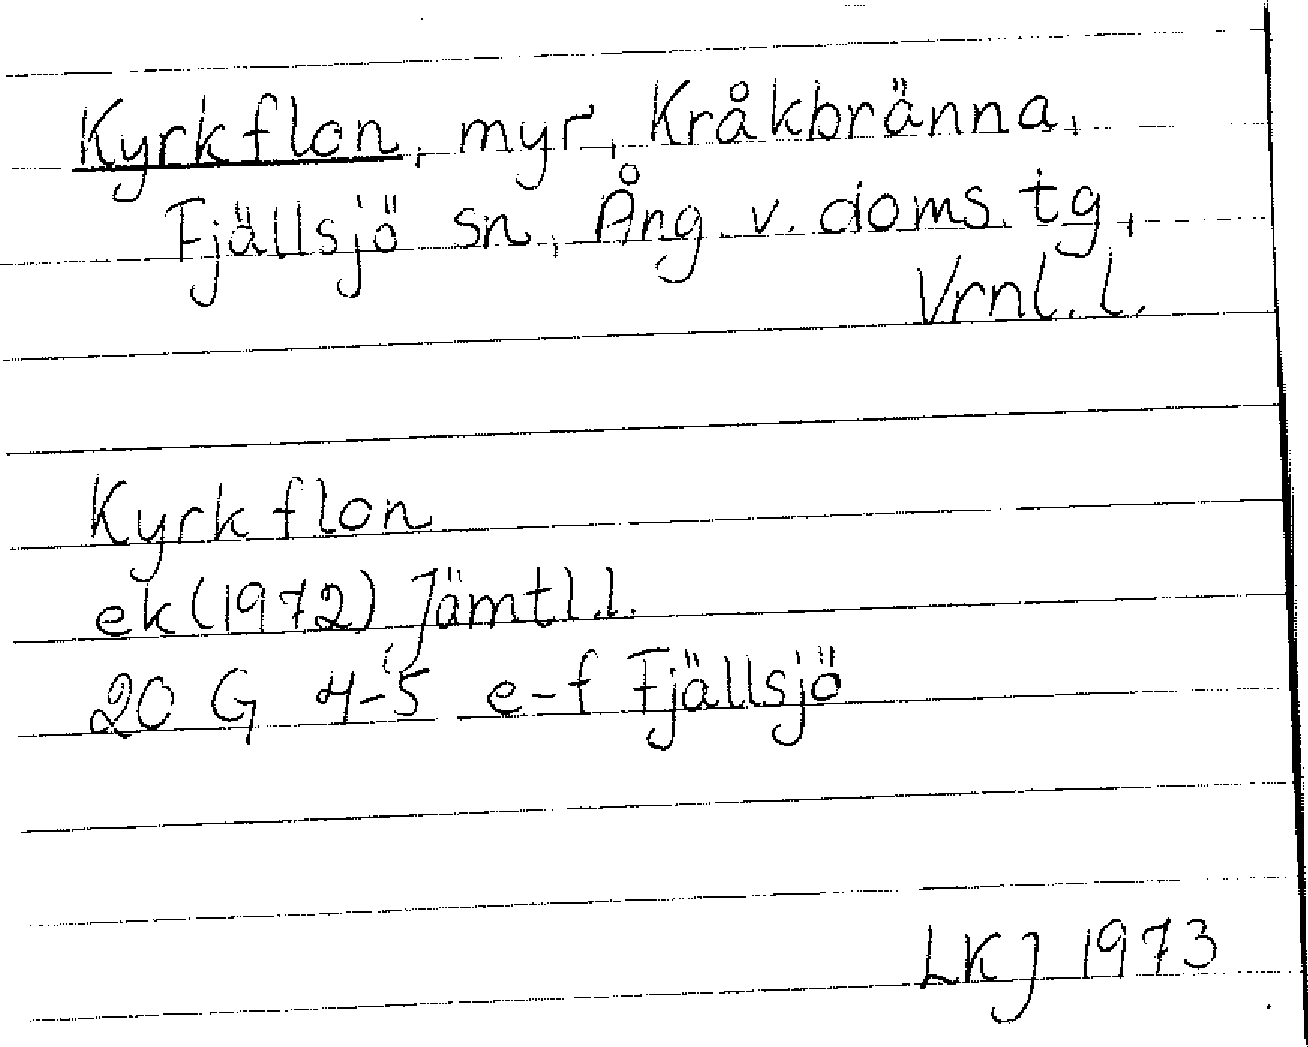 Kyrkflon, myr, Kråkbränna,
Fjällsjö sn, Ång. v. doms. tg,
Vrnl. l.
Kyrkflon
ek (1972) Jämtl.l.
20 G 4-5 e-f Fjällsjö
LKJ 1973